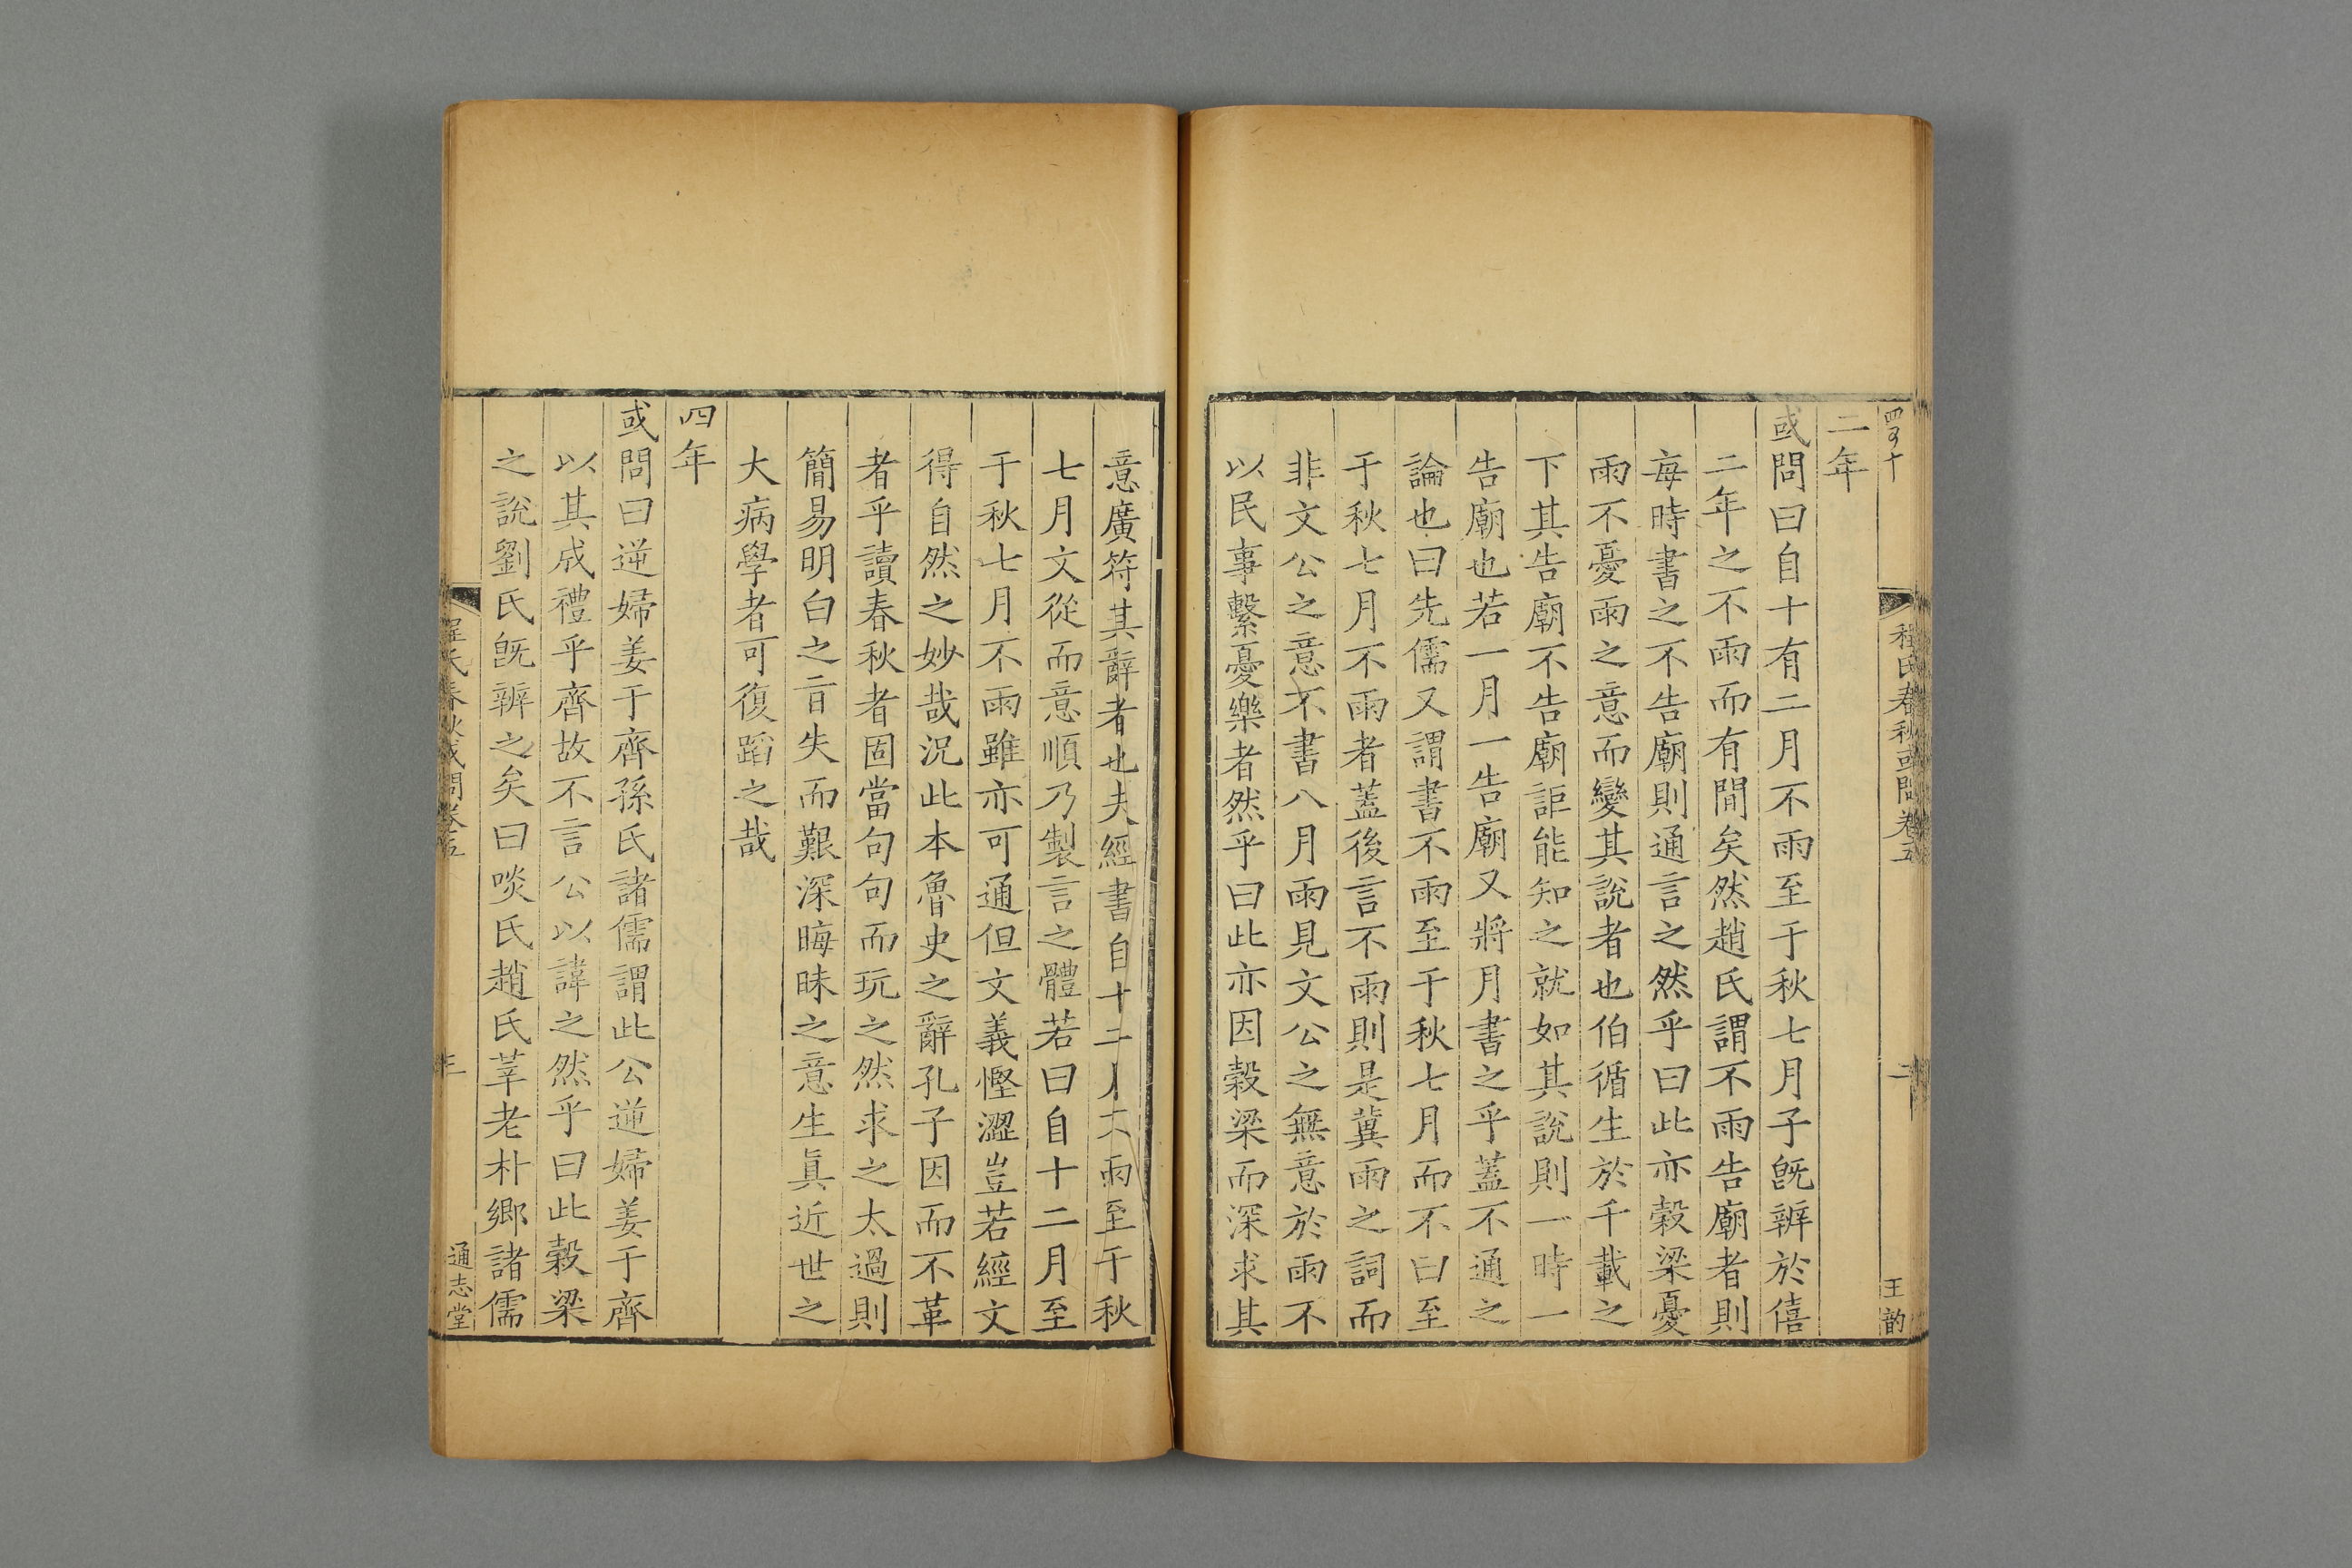 程氏春秋或問卷五
二
王韵
二年
或問曰自十有二月不雨至于秋七月子旣辨於僖
二年之不雨而有閒矣然趙氏謂不雨告廟者則
每時書之不告廟則通言之然乎曰此亦穀梁憂
雨不憂雨之意而變其說者也伯循生於千載之
下其告廟不告廟詎能知之就如其說則一時一
告廟也若一月一告廟又將月書之乎蓋不通之
論也曰先儒又謂書不雨至于秋七月而不曰至
于秋七月不雨者蓋後言不雨則是冀雨之詞而
非文公之意不書八月雨見文公之無意於雨不
以民事繫憂樂者然乎曰此亦因穀梁而深求其
意廣符其辭者也夫經書自十二月不雨至于秋
七月文從而意順乃製言之體若曰自十二月至
于秋七月不雨雖亦可通但文義慳澀豈若經文
得自然之妙哉況此本魯史之辭孔子因而不革
者乎讀春秋者固當句句而玩之然求之太過則
簡易明白之旨失而艱深晦昧之意生眞近世之
大病學者可復蹈之哉
四年
或問曰逆婦姜于齊孫氏諸儒謂此公逆婦姜于齊
以其成禮乎齊故不言公以諱之然乎曰此穀梁
之說劉氏旣辨之矣曰啖氏趙氏莘老朴鄉諸儒
程氏春秋或問卷五
三
通志堂